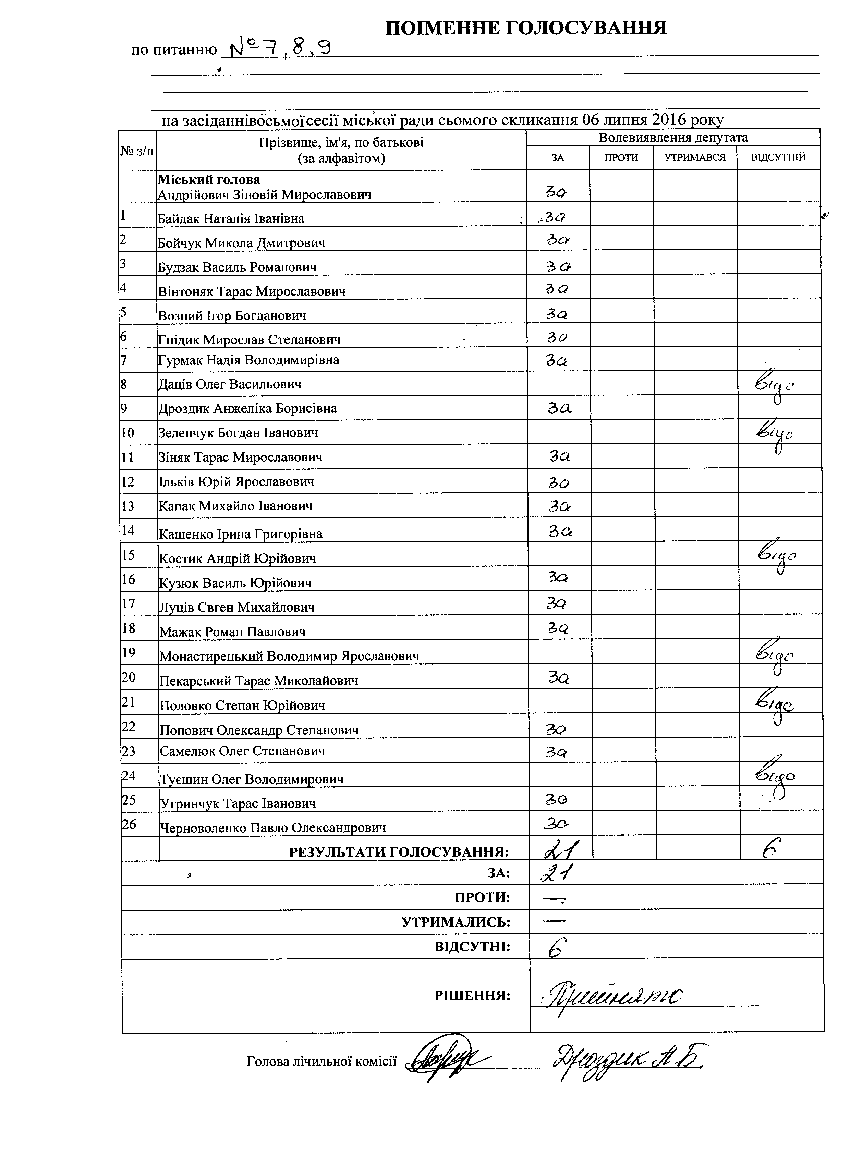 ПОІМЕННЕ ГОЛОСУВАННЯ
по питанню №7,8,9
на засіданнівосьмоїсесії міської ради сьомого скликання 06 липня 2016 року
№ з/п Прізвище, ім'я, по батькові (за алфавітом) Волевиявлення депутата
ЗА ПРОТИ УТРИМАВСЯ ВІДСУТНІЙ
Міський голова
Андрійович Зіновій Мирославович за
1 Байдак Наталія Іванівна за
2 Бойчук Микола Дмитрович за
3 Будзак Василь Романович за
4 Вінтоняк Тарас Мирославович за
5 Возний Ігор Богданович за
6 Гнідик Мирослав Степанович за
7 Гурмак Надія Володимирівна за
8 Даців Олег Васильович відс
9 Дроздик Анжеліка Борисівна за
10 Зеленчук Богдан Іванович відс
11 Зіняк Тарас Мирославович за
12 Ільків Юрій Ярославович за
13 Капак Михайло Іванович за
14 Кашенко Ірина Григорівна за
15 Костик Андрій Юрійович відс
16 Кузюк Василь Юрійович за
17 Луців Євген Михайлович за
18 Мажак Роман Павлович за
19 Монастирецький Володимир Ярославович відс
20 Пекарський Тарас Миколайович за
21 Половко Степан Юрійович відс
22 Попович Олександр Степанович за
23 Самелюк Олег Степанович за
24 Туєшин Олег Володимирович відс
25 Угринчук Тарас Іванович за
26 Черноволенко Павло Олександрович за
РЕЗУЛЬТАТИ ГОЛОСУВАННЯ: 21 6
ЗА: 21
ПРОТИ: —
УТРИМАЛИСЬ: —
ВІДСУТНІ: 6
РІШЕННЯ: Прийнято
Голова лічильної комісії Дроздик А.Б.